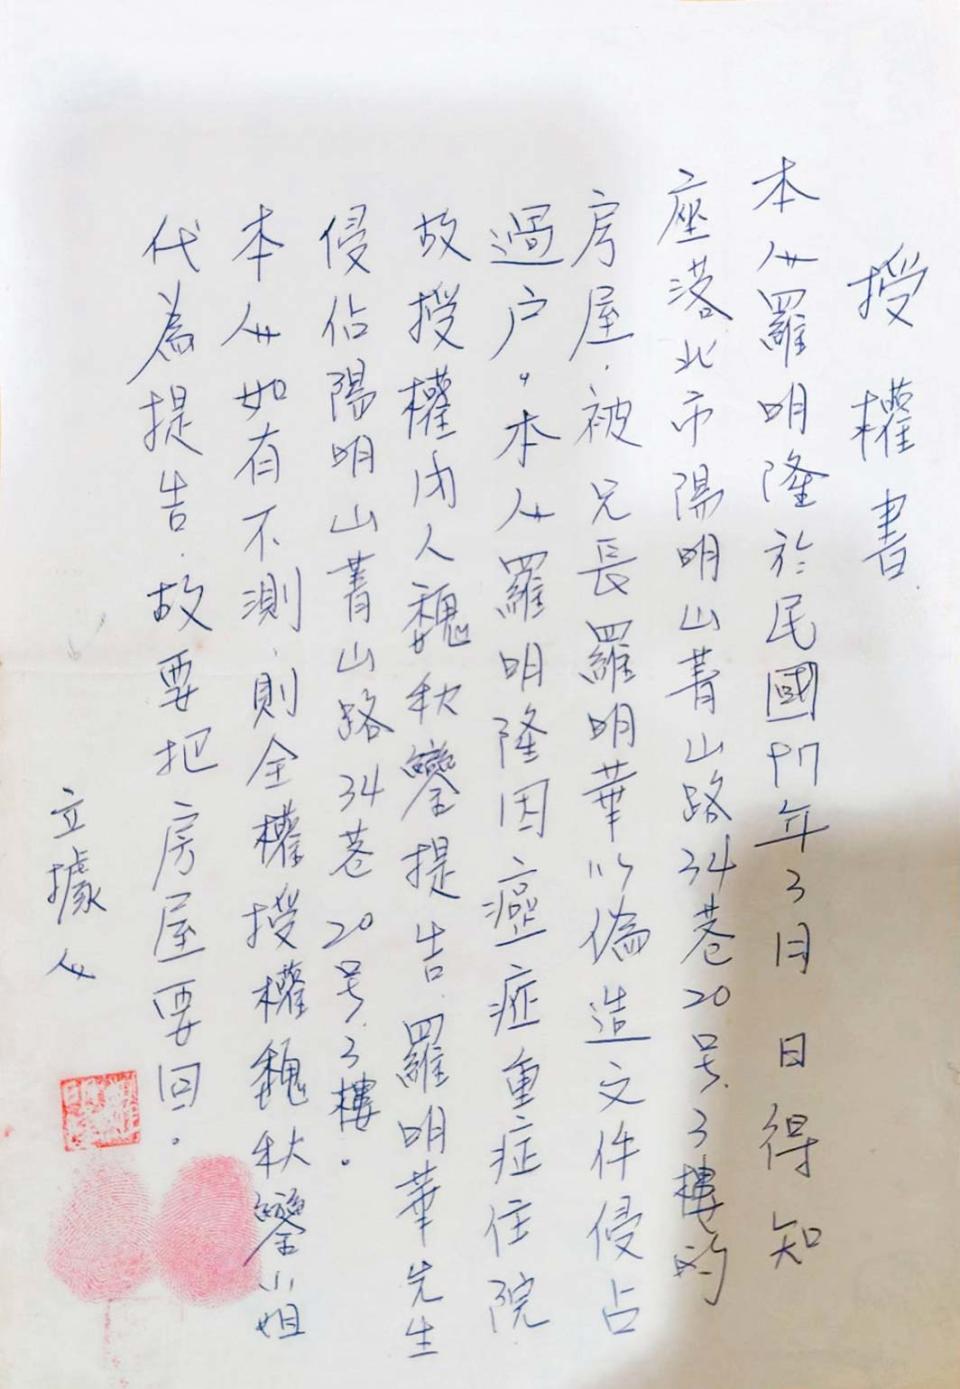 授權書
本人羅明隆於民國97年3月 日得知
座落北市陽明山菁山路34巷20号.3樓的
房屋.被兄長羅明華以偽造文件侵占
過户。本人羅明隆因癌症重症住院
故授權內人魏秋鑾提告.羅明華先生
侵佔陽明山菁山路34巷20号.3樓。
本人如有不測.則全權授權魏秋鑾小姐
代為提告.故要把房屋要回。
立據人